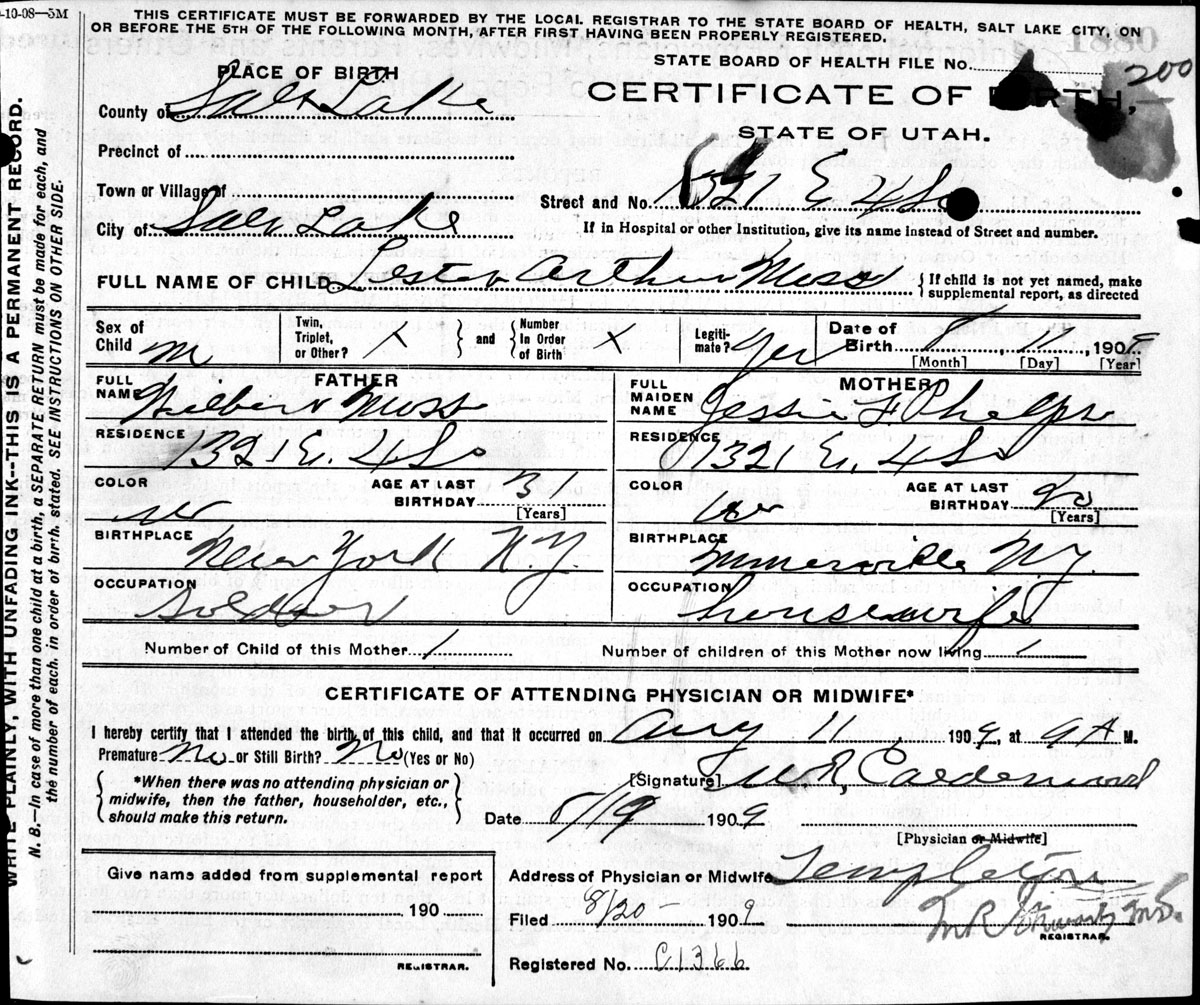 -10-08—5M
THIS CERTIFICATE MUST BE FORWARDED BY THE LOCAL REGISTRAR TO THE STATE BOARD OF HEALTH, SALT LAKE CITY, ON
OR BEFORE THE 5TH OF THE FOLLOWING MONTH, AFTER FIRST HAVING BEEN PROPERLY REGISTERED.
STATE BOARD OF HEALTH FILE No. 200
PLACE OF BIRTH
CERTIFICATE OF BIRTH,
STATE OF UTAH.
County of Salt Lake
Precinct of
Town or Village of
Street and No. 1321 E 4 So
City of Salt Lake
If in Hospital or other Institution, give its name instead of Street and number.
FULL NAME OF CHILD Lester Arthur Moss { If child is not yet named, make
supplemental report, as directed
Sex of Child M
Twin, Triplet, or Other? X } and { Number In Order of Birth X
Legitimate? Yes
Date of Birth 8 11 1909
[Month] [Day] [Year]
FATHER
FULL NAME Wilbert Moss
RESIDENCE 1321 E. 4 So
COLOR W
AGE AT LAST BIRTHDAY 31 [Years]
BIRTHPLACE New York N.Y.
OCCUPATION Soldier
MOTHER
FULL MAIDEN NAME Jessie F. Phelps
RESIDENCE 1321 E. 4 So
COLOR W
AGE AT LAST BIRTHDAY 20 [Years]
BIRTHPLACE N.Y.
OCCUPATION housewife
Number of Child of this Mother 1
Number of children of this Mother now living 1
CERTIFICATE OF ATTENDING PHYSICIAN OR MIDWIFE*
I hereby certify that I attended the birth of this child, and that it occurred on Aug 11, 1909, at 9 A M.
Premature No or Still Birth? No (Yes or No)
{ *When there was no attending physician or
midwife, then the father, householder, etc.,
should make this return. }
[Signature] R, Calderwood
Date 8/19 1909
[Physician or Midwife]
Give name added from supplemental report
190
REGISTRAR.
Address of Physician or Midwife Templeton
Filed 8/20 1909
M R Stewart M.D.
REGISTRAR.
Registered No. C1366
WRITE PLAINLY, WITH UNFADING INK--THIS IS A PERMANENT RECORD.
N. B.—In case of more than one child at a birth, a SEPARATE RETURN must be made for each, and
the number of each, in order of birth, stated. SEE INSTRUCTIONS ON OTHER SIDE.